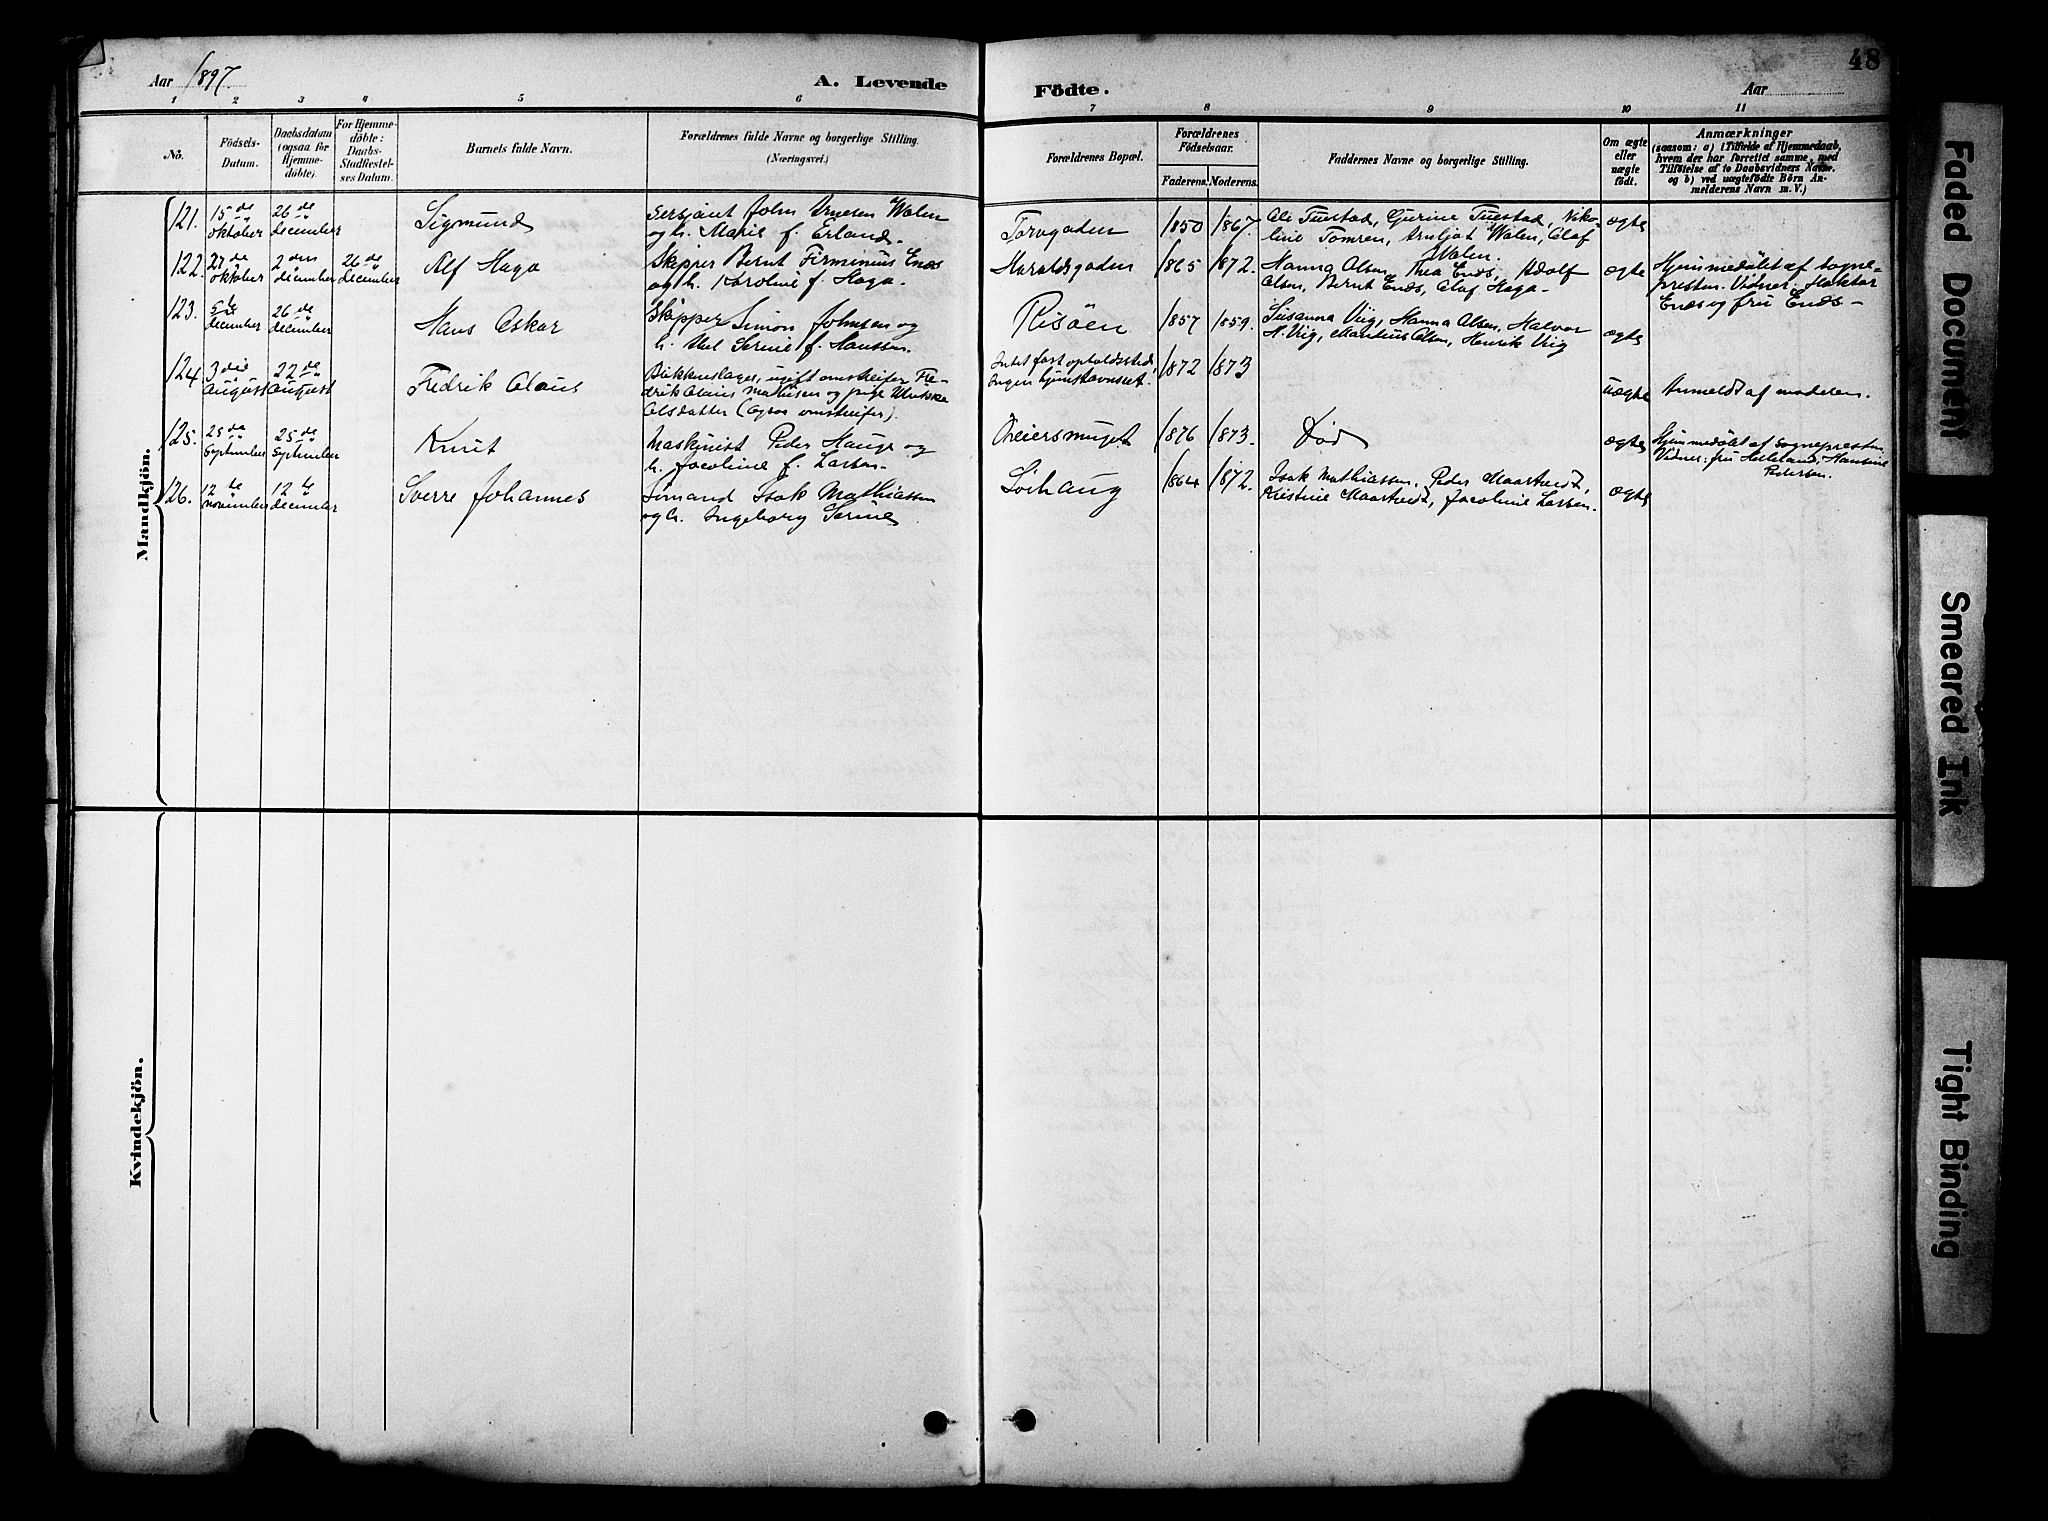 48
Aar 1897.
A. Levende
Födte.
Aar
1 2 3 4 5 6 7 8 9 10 11
No.
Födsels-
Datum.
Daabsdatum
(ogsaa for
Hjemme-
döbte).
For Hjemme-
döbte:
Daabs-
Stadfæstel-
ses Datum.
Barnets fulde Navn.
Forældrenes fulde Navne og borgerlige Stilling.
(Næringsvei.)
Forældrenes Bopæl.
Forældrenes
Födselsaar.
Faderens. Moderens.
Faddernes Navne og borgerlige Stilling.
Om ægte
eller
uægte
födt.
Anmærkninger
(saasom: a) i Tilfælde af Hjemmedaab,
hvem der har forrettet samme, med
Tilföielse af to Daabsvidners Navne.
og b) ved uægtefödte Börn An-
melderens Navn m. V.)
Mandkjön.
121.
15de
oktober
26de
december
Sigmund
Sersjant John Arnesen Walen
og h. Marie f. Erland.
Torvgaden
1850
1867.
Ole Tuestad, Gurine Tuestad, Niko-
line Tomren, Walen, Olaf
Walen.
ægte
122.
27de
oktober
2den
december
26de
december
Alf Haga
Skipper Bernt Firminius Enæs
og h. Karoline f. Haga.
Haraldsgaden
1865
1872.
Hanna Olsen, Thea Enæs, Adolf
Olsen, Bernt Enæs, Olaf Haga.
ægte
Hjemmedøbt af sogne-
presten. Vidner:
Enæs og fru Enæs -
123.
5te
december
26de
december
Hans Oskar
Skipper Simon Johnsen og
h. Serine f. Hanssen.
Risöen
1857
1859.
Susanna Vrig, Hanna Olsen, Halvor
H. Vrig, Martinus Olsen, Henrik Vrig
ægte
124.
3die
August
22de
August
Fredrik Olaus
Blikkenslager, ugift omstreifer Fre-
drik Olaus Mathisen og pige
Olsdatter (Ogsaa omstreifer).
Intet fast opholdssted,
Ingen hjemstavnsret.
1872
1873
uægte
Anmeldt af moderen.
125.
25de
September
25de
September
Knut
Maskinist Peder Hauge og
h. Jacobine f. Larsen.
1876
1873.
Död
ægte
Hjemmedøbt af sognepresten
Vidner: fru Helland, Hansine
Pedersen.
126.
12te
november
12te
december
Sverre Johannes
Sömand Isak Mathiassen
og h. Ingeborg Serine
Sörhaug
1864
1872.
Isak Mathiassen, Peder Maartveidt,
Kristine Maartveidt, Jacobine Larsen.
ægte
Kvindekjön.
Faded Document
Smeared Ink
Tight Binding